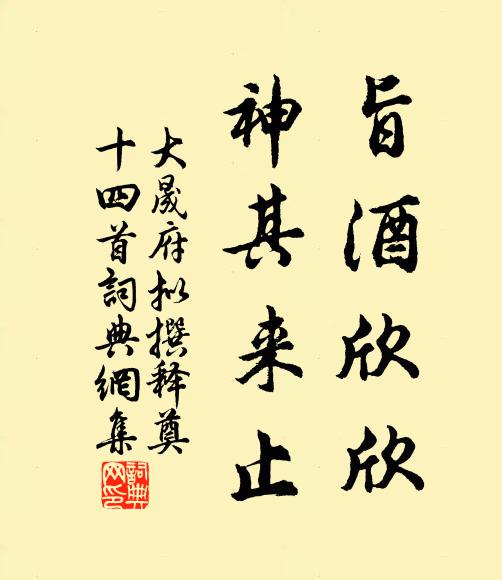 旨酒欣欣
神其来止
大晟府拟撰释奠
十四首詞典網集
詞典
网印